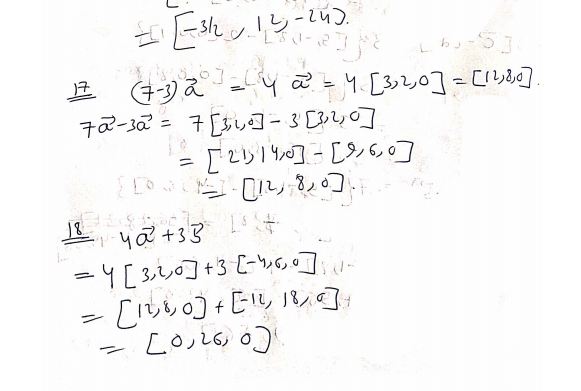 = [-3/2, 12, -24].
17 (7-3)a⃗ = 4 a⃗ = 4 [3,2,0] = [12,8,0].
7a⃗-3a⃗ = 7[3,2,0] - 3[3,2,0]
= [21,14,0] - [9,6,0]
= [12, 8, 0].
18 4a⃗+3b⃗
= 4[3,2,0]+3[-4,6,0]
= [12,8,0]+[-12, 18, 0]
= [0, 26, 0]